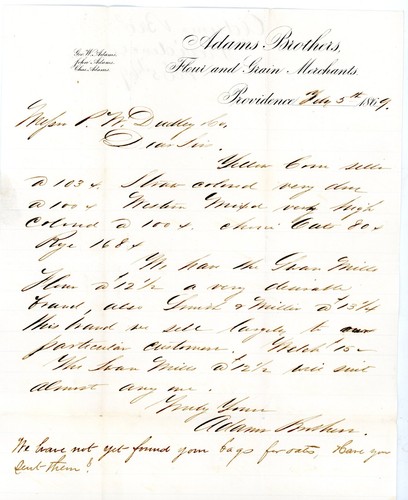 Geo W. Adams,
John Adams,
Chas Adams.
Adams Brothers,
Flour and Grain Merchants.
Providence Feby 5th 1869.
Messrs P. W. Dudley & Co
Dear Sir
Yellow Corn sells
@ 103 ¢. Straw colored very dry
@ 100 ¢ Western Mixed very high
colored @ 100 ¢. choice Oats 80 ¢
Rye 168 ¢
We have the Swan Mills
Flour @ 12 1/2 a very desirable
brand, also Smith & Miller @ 13 1/4
this brand we sell largely to our
particular customers. Welch 15 –
The Swan Mills @ 12 1/2 will suit
almost any one.
Truly Yours
Adams Brothers.
We have not yet found your bags for oats, Have you
sent them?